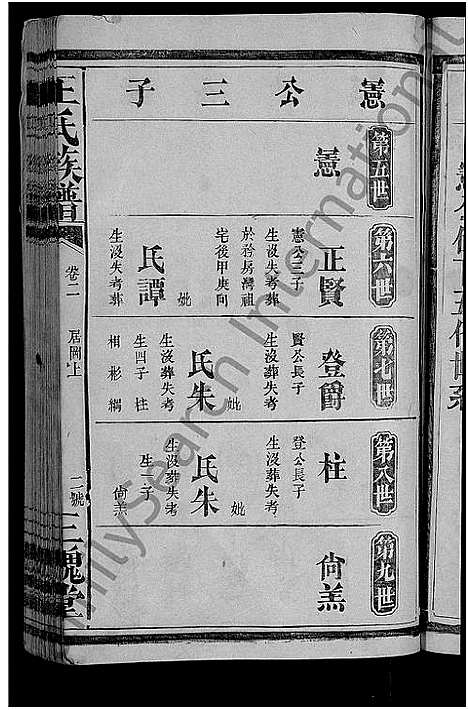 憲公三子
第五世
憲
第六世
正賢
憲公三子
生沒失考葬
於矜房灣祖
宅後甲庚向
妣
氏譚
生沒失考葬
第七世
登爵
賢公長子
生沒葬失考
妣
氏朱
生沒葬失考
生四子 柱
相 彬 綢
第八世
柱
登公長子
生沒葬失考
妣
氏朱
生沒葬失考
生一子
尙羔
第九世
尙羔
王氏族譜
卷二
居岡上
二號
三槐堂
FamilySearch International